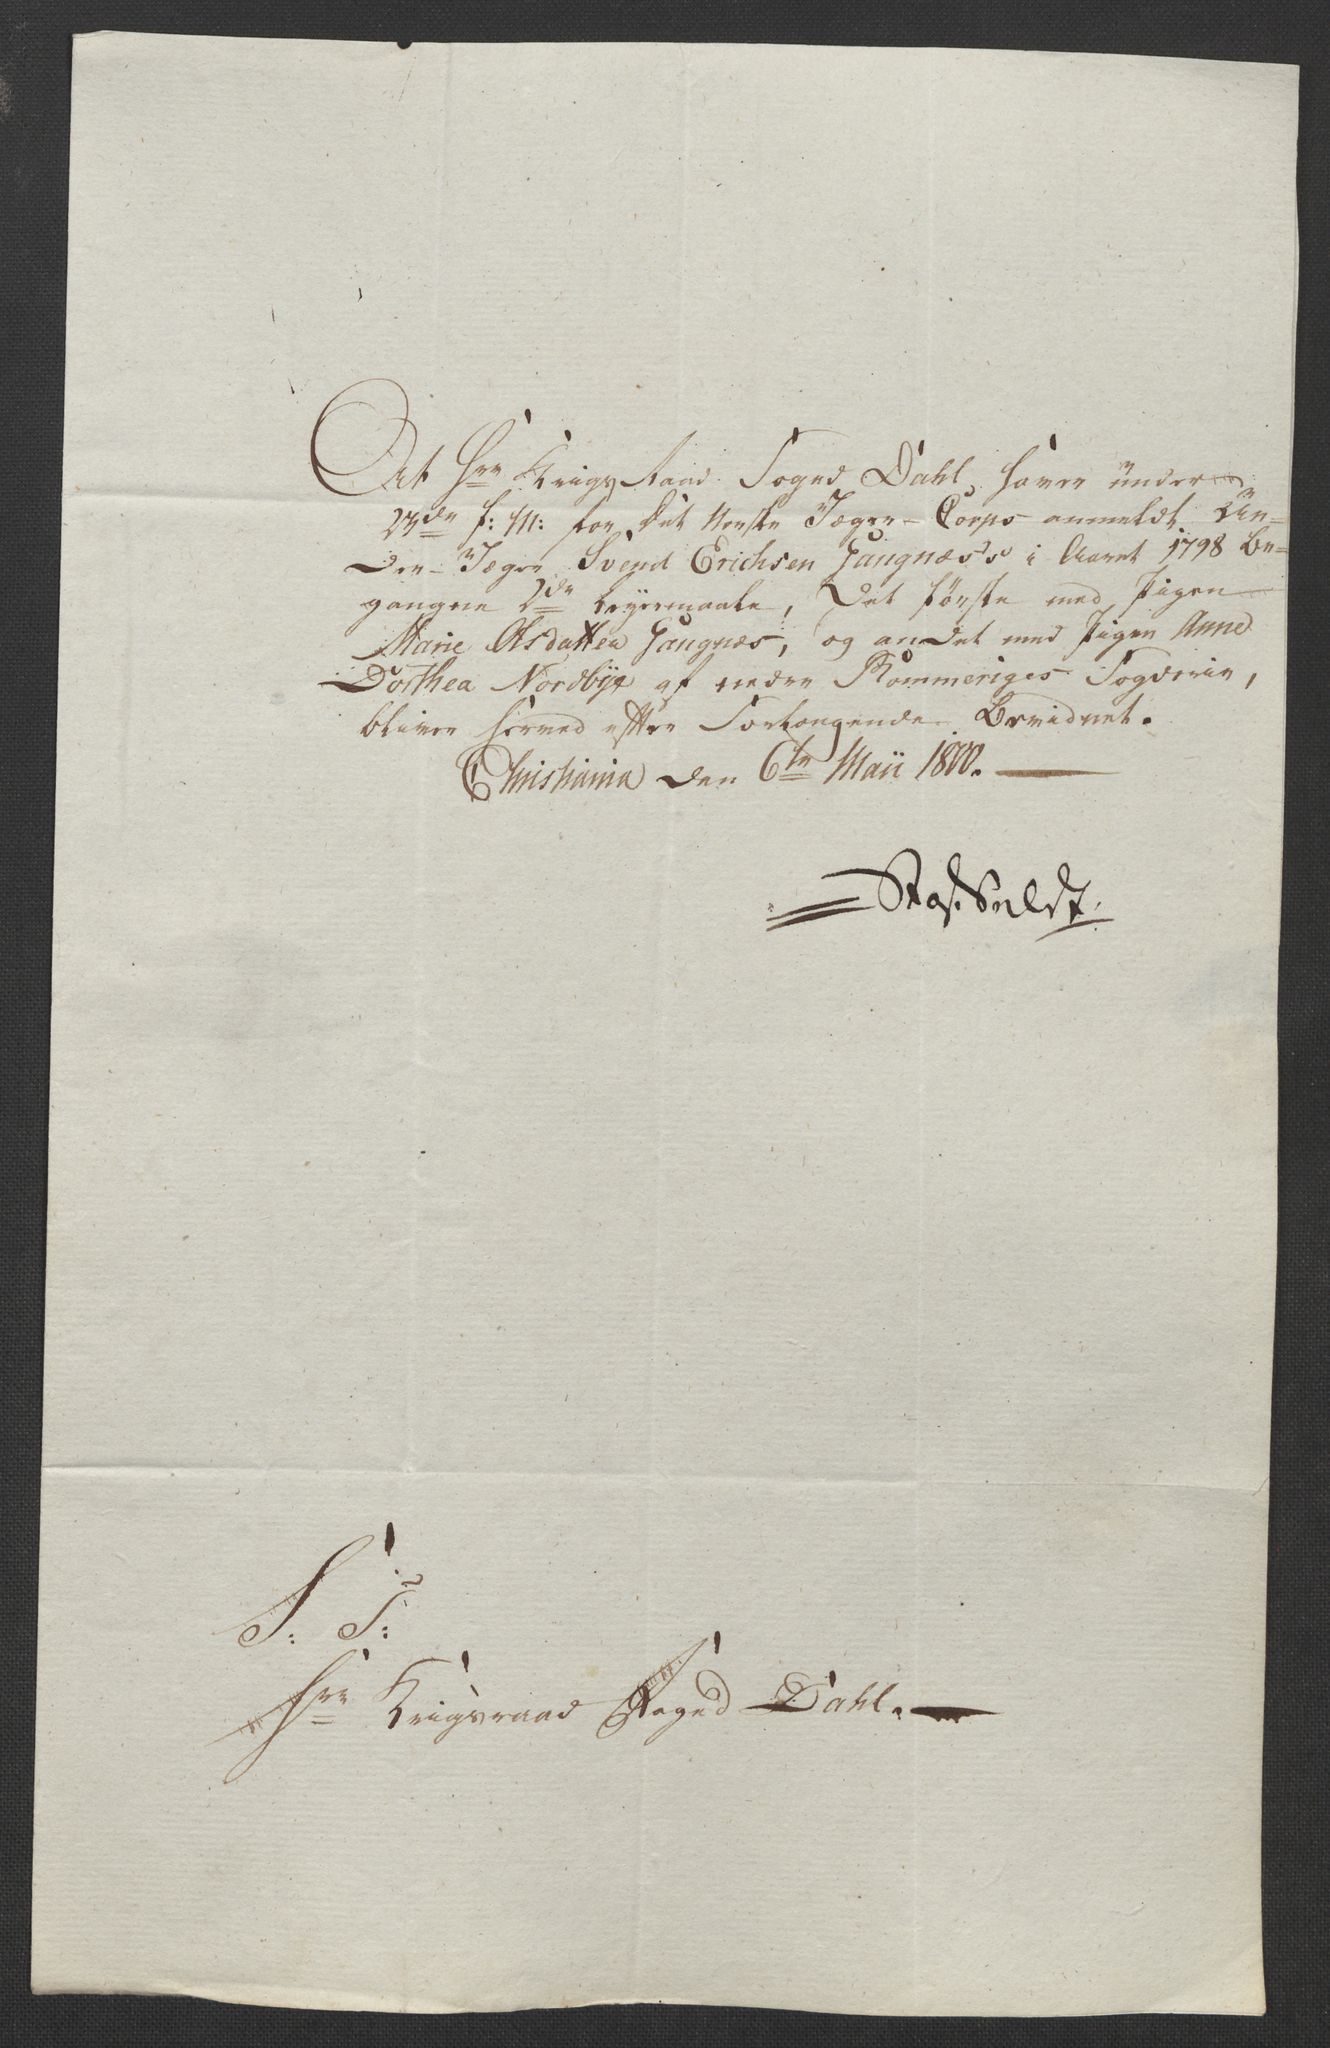 At Hrr Krigs Raad Foged Dahl, haver under
23de f: M: for det Norske Jæger-Corps anmeldt Un-
der-Jæger Svend Erichsen Gangnæs's i Aaret 1798 be-
gangne 2de Leyermaale, det første med Pigen
Marie Olsdatter Gangnæs, og andet med Pigen Anne
Dorthea Nordbye af nedre Rommeriges Fogderie,
bliver herved efter Forlangende Bevidnet.
Christiania den 6te Maii 1800.
Staffeldt.
S: T:
Hrr Krigsraad Foged Dahl.